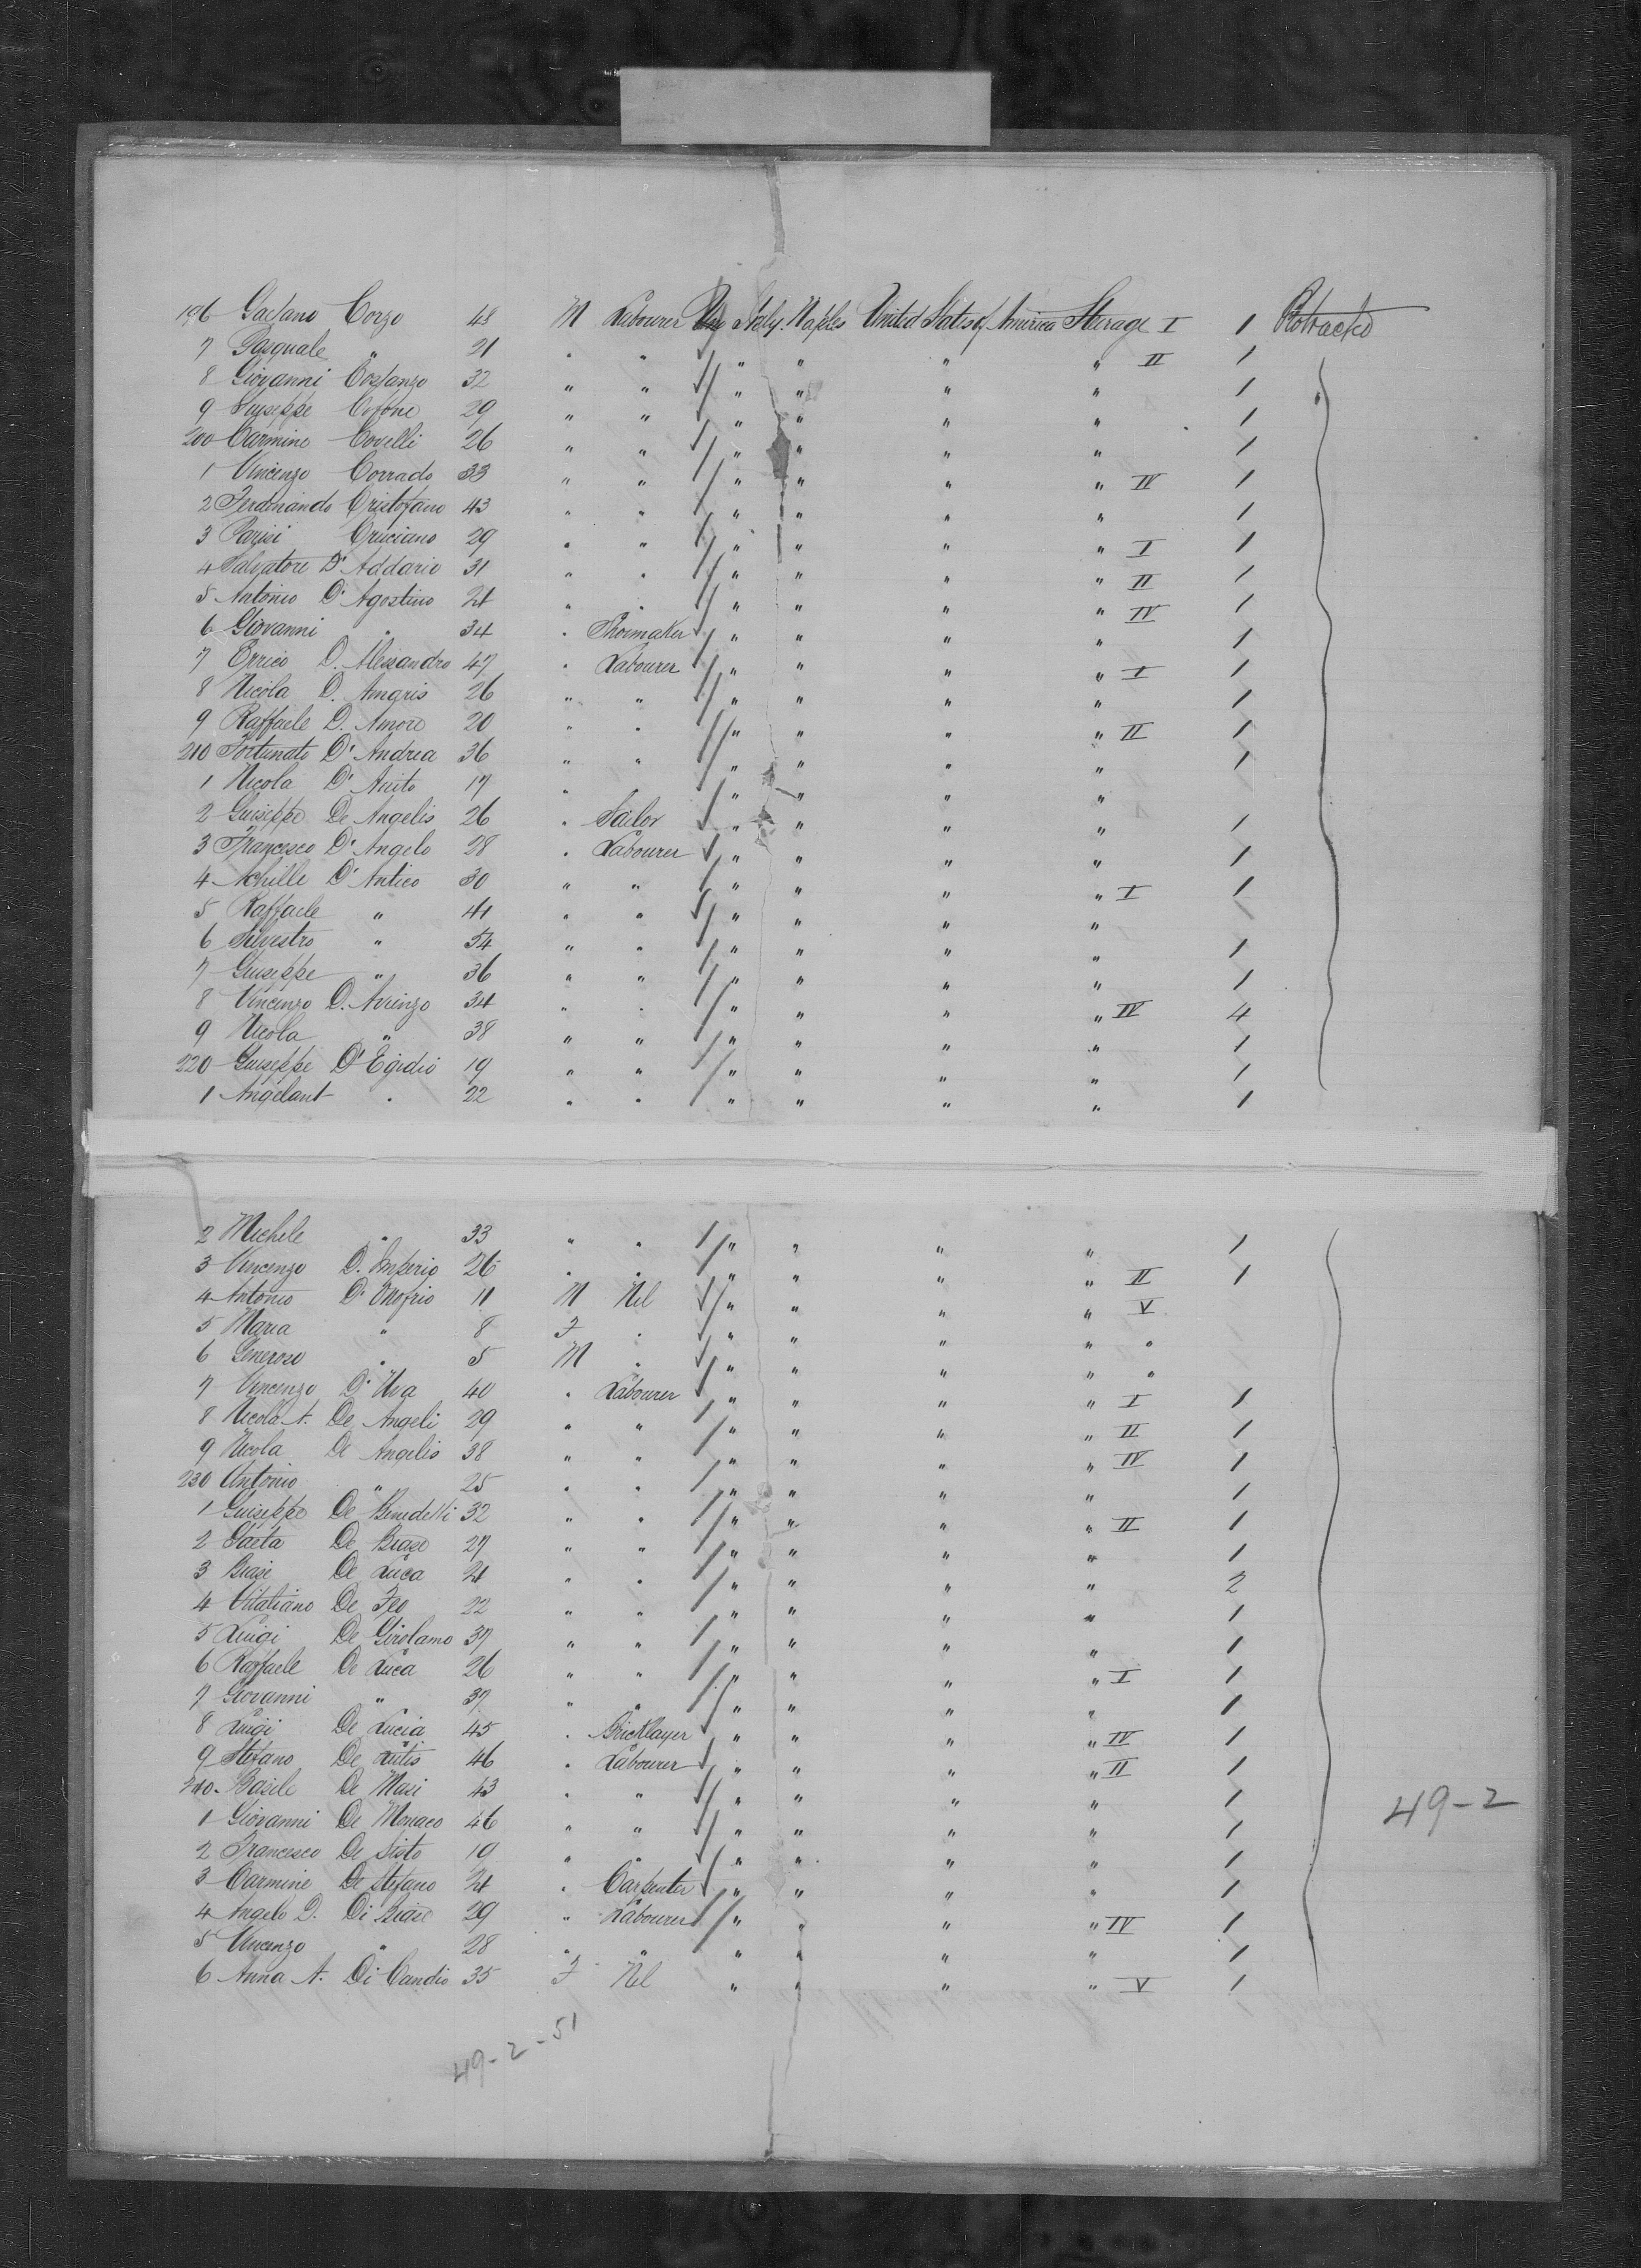 196 Gaetano Corzo 48 M Labourer Italy Naples United States of America Steerage I 1 Protracted
7 Pasquale " 21 " " " " " " II 1
8 Giovanni Costanzo 32 " " " " " " 1
9 Giuseppe Cofone 29 " " " " " " 1
200 Carmine Covelli 26 " " " " " " 1
1 Vincenzo Corrado 33 " " " " " " IV 1
2 Ferdinando Cristofano 43 " " " " " " 1
3 Parisi Cruciano 29 " " " " " " I 1
4 Salvatore D'Addario 31 " " " " " " II 1
5 Antonio D'Agostino 24 " " " " " " IV 1
6 Giovanni " 34 " Shoemaker " " " " 1
7 Errico D. Alessandro 47 " Labourer " " " " I 1
8 Nicola D. Amgris 26 " " " " " " 1
9 Raffaele D. Amore 20 " " " " " " II 1
210 Fortunato D'Andrea 36 " " " " " " 1
1 Nicola D' 17 " " " " " "
2 Guiseppe De Angelis 26 " Sailor " " " " 1
3 Francesco D'Angelo 28 " Labourer " " " " 1
4 Achille D'Antico 30 " " " " " " I 1
5 Raffaele " 41 " " " " " "
6 Silvestro " 54 " " " " " " 1
7 Giuseppe " 36 " " " " " " 1
8 Vincenzo D. Avienzo 34 " " " " " " IV 4
9 Nicola " 38 " " " " " " 1
220 Guiseppe D'Egidio 19 " " " " " " 1
1 Angelant " 22 " " " " " " 1
2 Michele " 33 " " " " " " 1
3 Vincenzo D. Imperio 26 " " " " " " II 1
4 Antonio D'Onofrio 11 M Nil " " " " V
5 Maria " 8 F " " " " " "
6 Generoso " 5 M " " " " " "
7 Vincenzo D'Uva 40 " Labourer " " " " I 1
8 Nicola A. De Angeli 29 " " " " " " II 1
9 Nicola De Angelis 38 " " " " " " IV 1
230 Antonio " 25 " " " " " " 1
1 Guiseppe De Benedetti 32 " " " " " " II 1
2 Gaeta De Biase 27 " " " " " " 1
3 Biase De Luca 24 " " " " " " 2
4 Vitaliano De Feo 22 " " " " " " 1
5 Luigi De Girolamo 37 " " " " " " 1
6 Raffaele De Luca 26 " " " " " " I 1
7 Giovanni " 37 " " " " " " 1
8 Luigi De Lucia 45 " Bricklayer " " " " IV 1
9 Stefano De Lutis 46 " Labourer " " " " II 1
240 Basile De Masi 43 " " " " " " 1
1 Giovanni De Monaco 46 " " " " " " 1
49-2
2 Francesco De Sisto 19 " " " " " " 1
3 Carmine De Stefano 24 " Carpenter " " " " 1
4 Angelo D. Di Biase 29 " Labourer " " " " IV 1
5 Vincenzo " 28 " " " " " " 1
6 Anna A. Di Candio 35 F Nil " " " " V 1
49-2-51